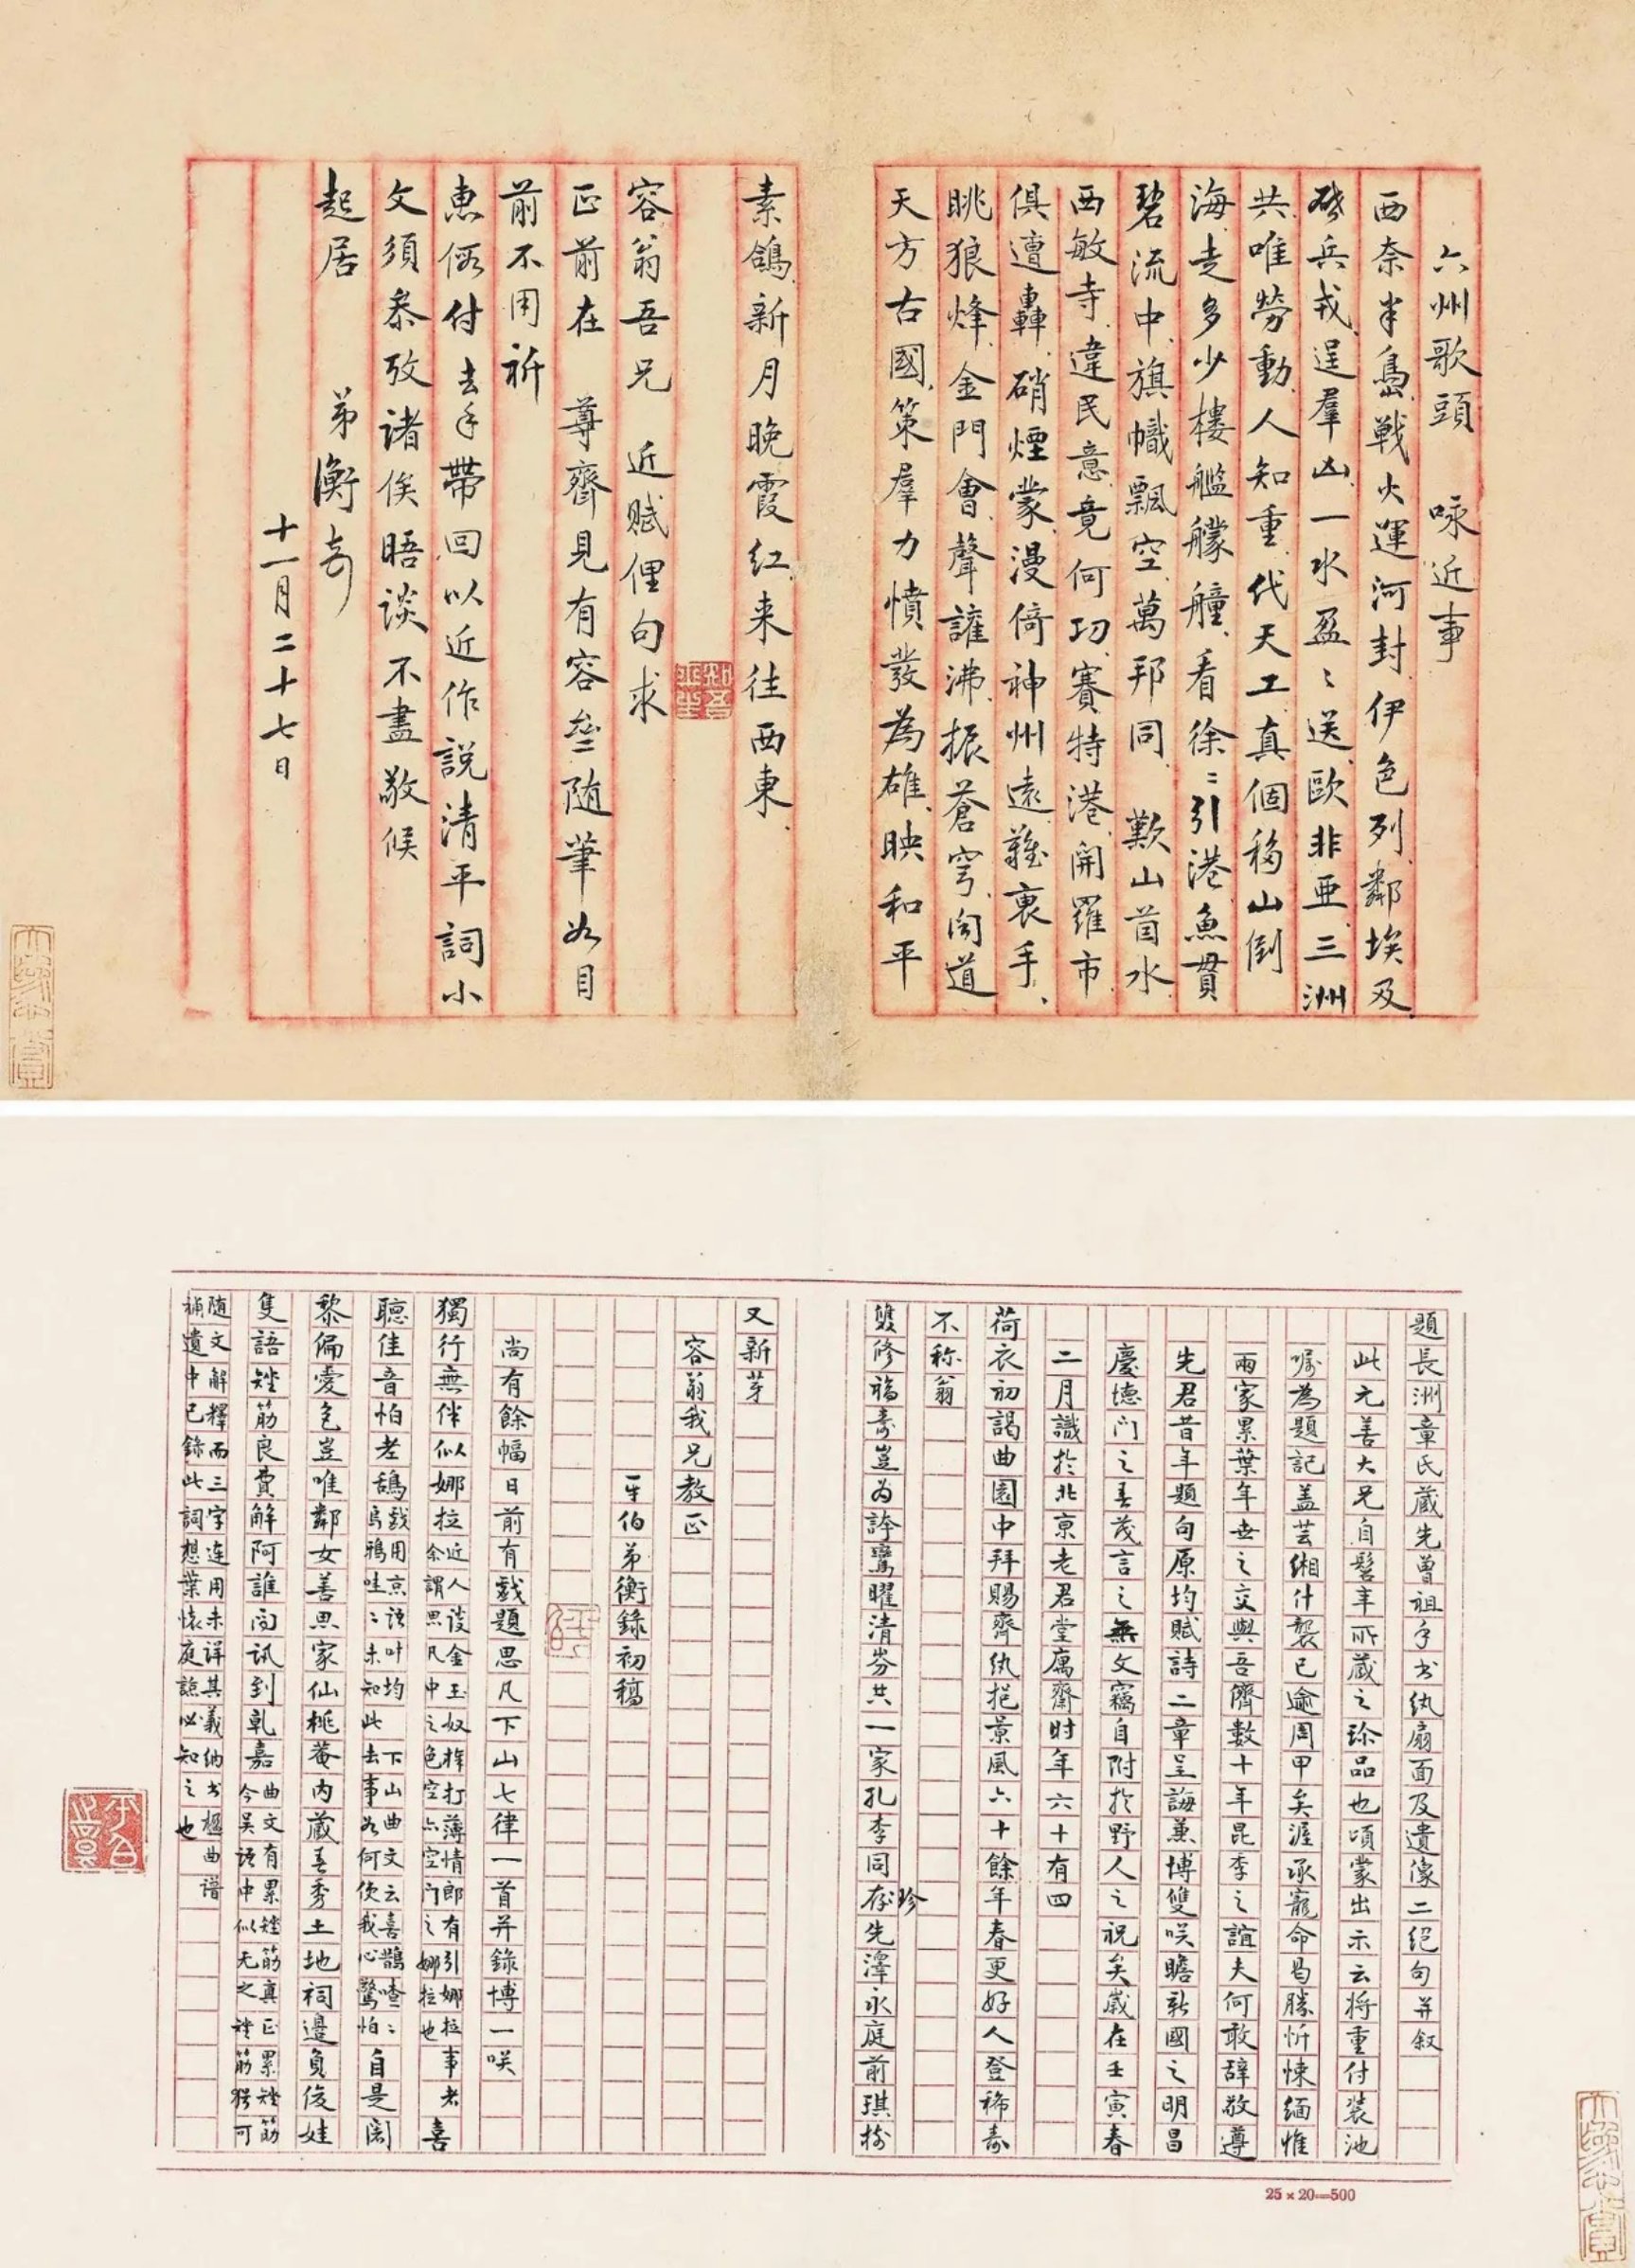 六州歌頭 咏近事
西奈半島戰火運河封伊色列鄰埃及
啓兵戎逞羣凶一水盈〻送歐非亜三洲
共唯勞動人知重代天工真個移山倒
海走多少樓艦艨艟看徐〻引港魚貫
碧流中旗幟飄空萬邦同 歎山茵水
西敏寺違民意竟何功賽特港開羅市
俱遭轟硝煙蒙漫倚神州遠難裏手
眺狼烽金門會聲讙沸振蒼穹闻道
天方古國策羣力憤發為雄映和平
素鴿新月晚霞红来往西東
容翁吾兄 近赋俚句求
正前在 尊齋見有容壘随筆如目
前不用祈
惠假付去手帶回以近作説清平詞小
文須叅攷諸俟晤谈不盡敬候
起居 弟衡奇
十一月二十七日
題長洲章氏蔵先曾祖手书纨扇面及遺像二绝句并叙
此元善大兄自髫年所蔵之珎品也頃蒙出示云将重付装池
嘱為題記盖芸緗什襲已逾周甲矣渥承寵命曷勝忻悚緬惟
兩家累葉年世之交與吾儕數十年昆季之誼夫何敢辞敬遵
先君昔年題句原均賦詩二章呈誨兼博雙咲瞻新國之明昌
慶德门之美茂言之無文竊自附於野人之祝矣歲在壬寅春
二月識於北京老君堂寓齋时年六十有四
荷衣初謁曲園中拜賜齊纨挹景風六十餘年春更好人登稀壽
不称翁
雙修福壽豈為誇鸞曜清芬共一家孔李同珍存先澤永庭前琪樹
又新芽
容翁我兄教正
平伯弟衡錄初稿
尚有餘幅日前有戲題思凡下山七律一首并錄博一咲
獨行無伴似娜拉近人谈金玉奴棒打薄情郎有引娜拉事者余謂思凡中之色空六空门之娜拉也喜
聽佳音怕老鴰戲用京语叶均鴰鴉哇〻未知此去事如何下山曲文云喜鵲喳〻使我心驚怕〻自是闍
黎偏愛色豈唯鄰女善思家仙桃菴内蔵春秀土地祠邉負俊娃
隻語矬筋良費解阿誰问訊到乾嘉曲文有累矬筋真正累矬筋今吴语中似无之矬筋猶可
随文解釋而三字连用未详其義纳书楹曲谱
補遺中已錄此詞想葉懷庭諒必知之也
25×20=500